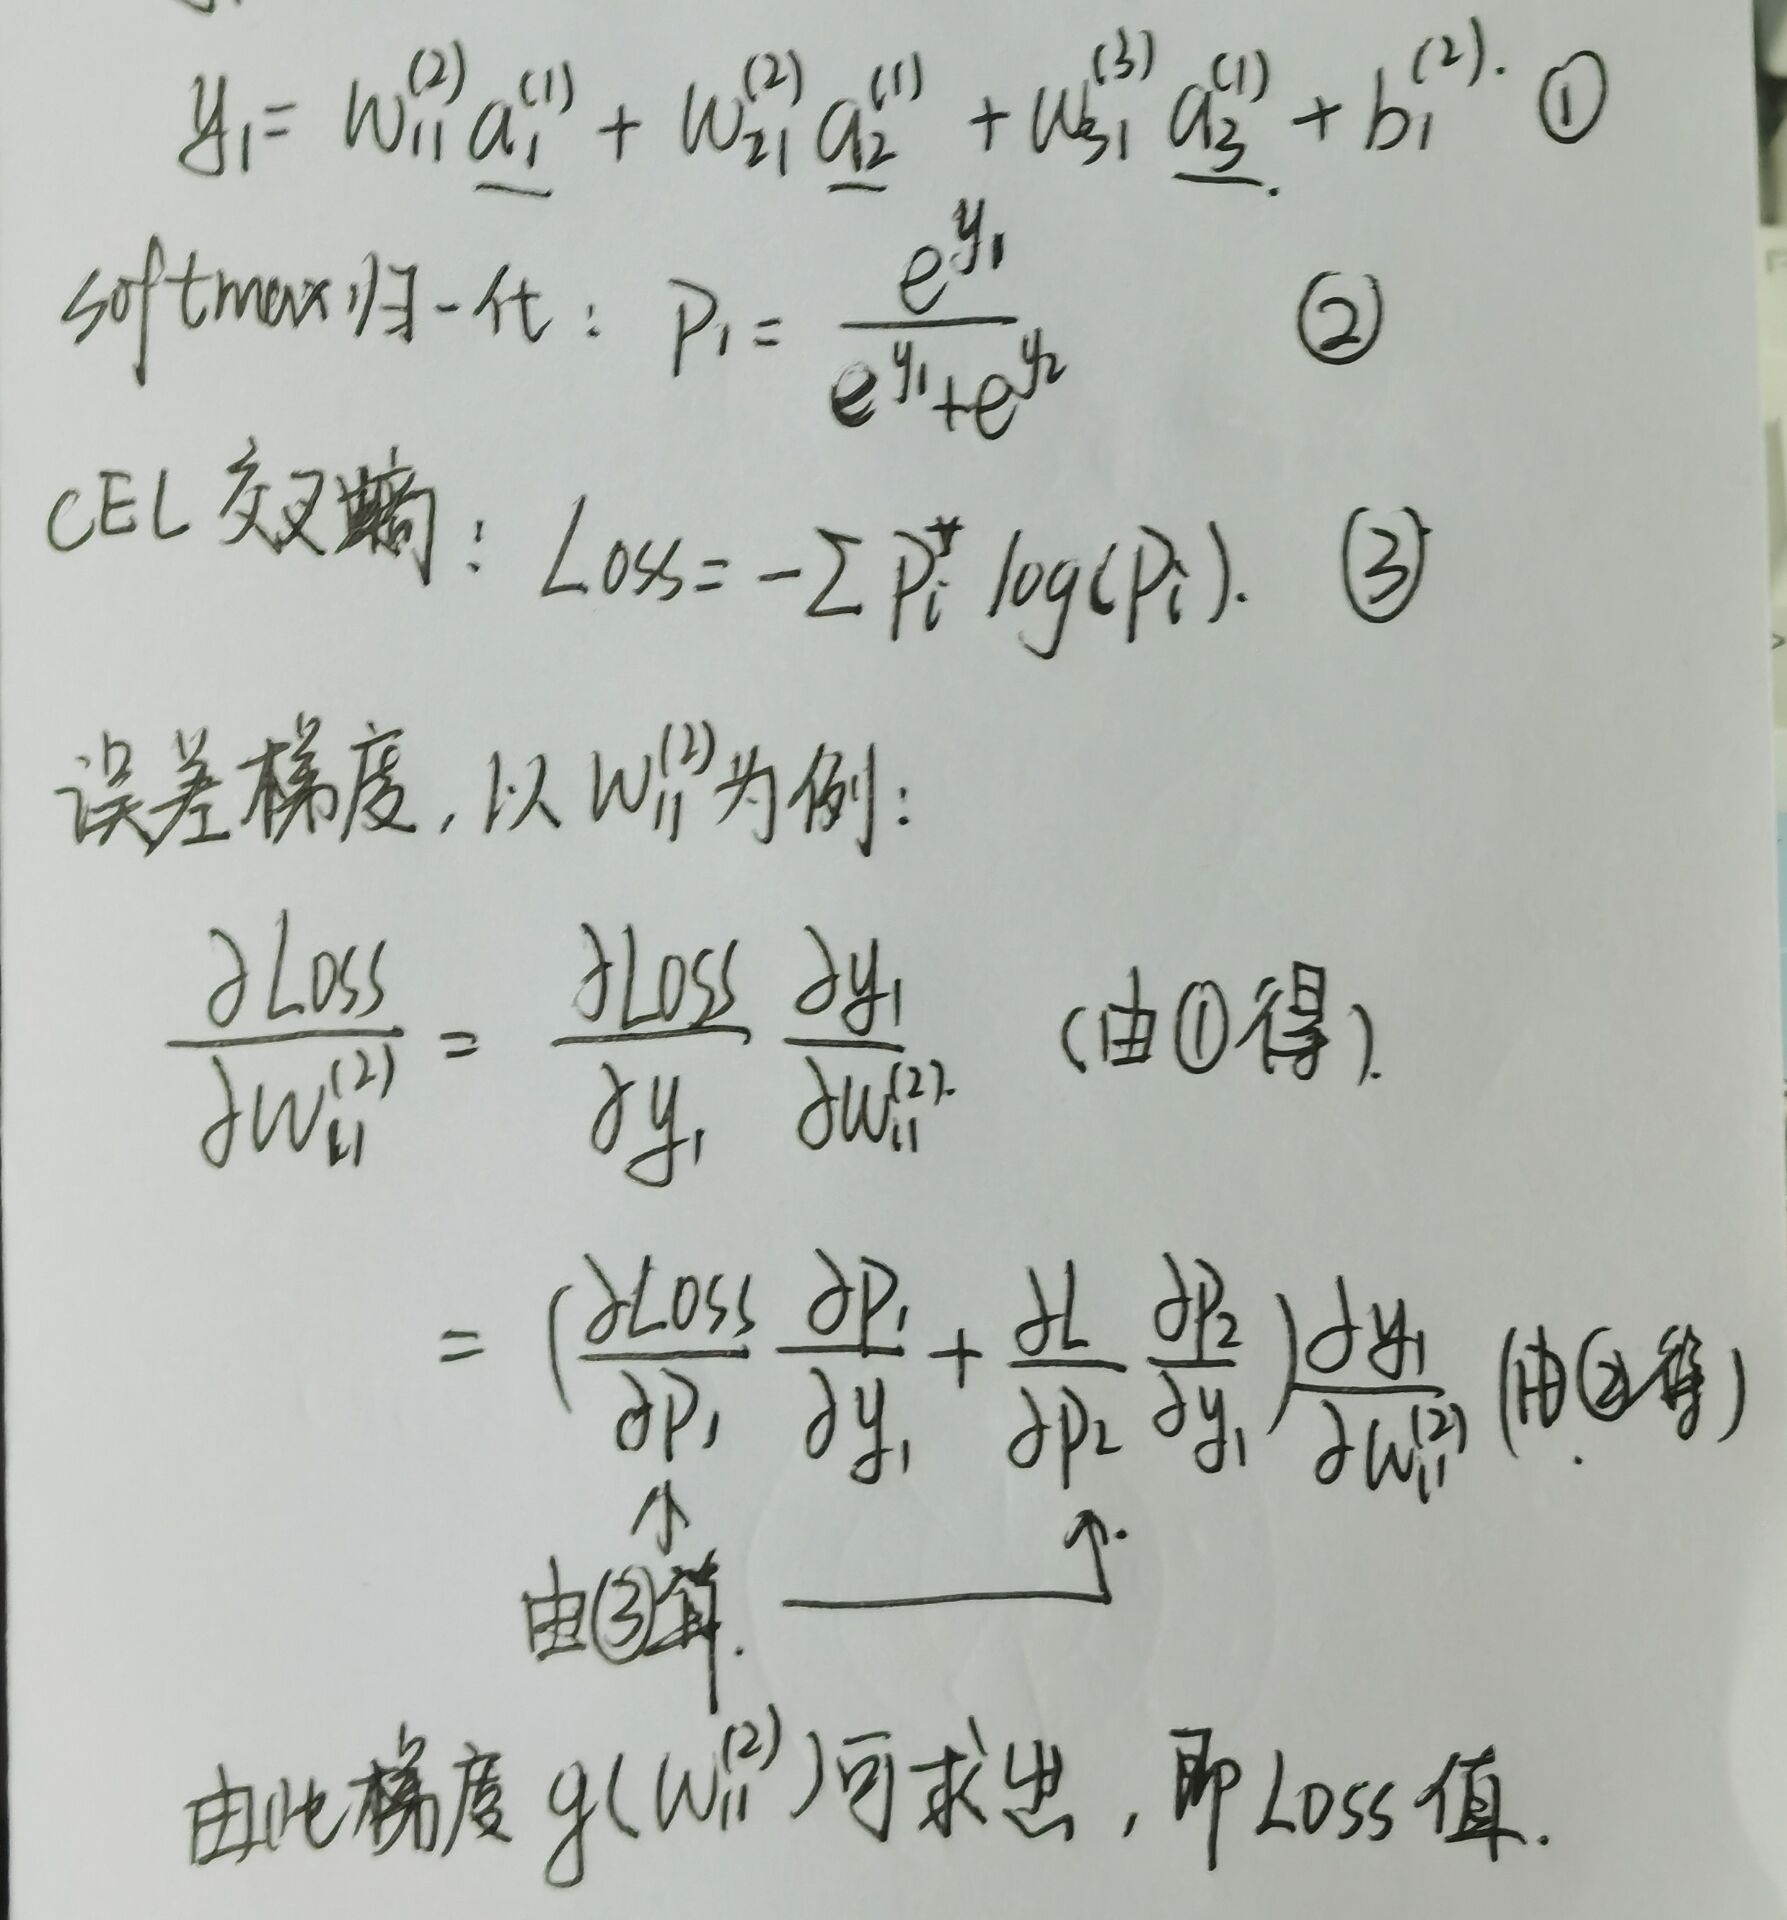 y₁ = W₁₁⁽²⁾ a₁⁽¹⁾ + W₂₁⁽²⁾ a₂⁽¹⁾ + W₃₁⁽³⁾ a₃⁽¹⁾ + b₁⁽²⁾. ①
softmax归一化: P₁ = e^{y₁} / (e^{y₁} + e^{y₂}) ②
CEL交叉熵: Loss = -Σ Pᵢ* log(Pᵢ). ③
误差梯度, 以 W₁₁⁽²⁾ 为例:
∂Loss/∂W₁₁⁽²⁾ = ∂Loss/∂y₁ ∂y₁/∂W₁₁⁽²⁾ (由①得).
= (∂Loss/∂P₁ ∂P₁/∂y₁ + ∂L/∂P₂ ∂P₂/∂y₁) ∂y₁/∂W₁₁⁽²⁾ (由②得)
由③算.
由此梯度 g(W₁₁⁽²⁾) 可求出, 即Loss值.